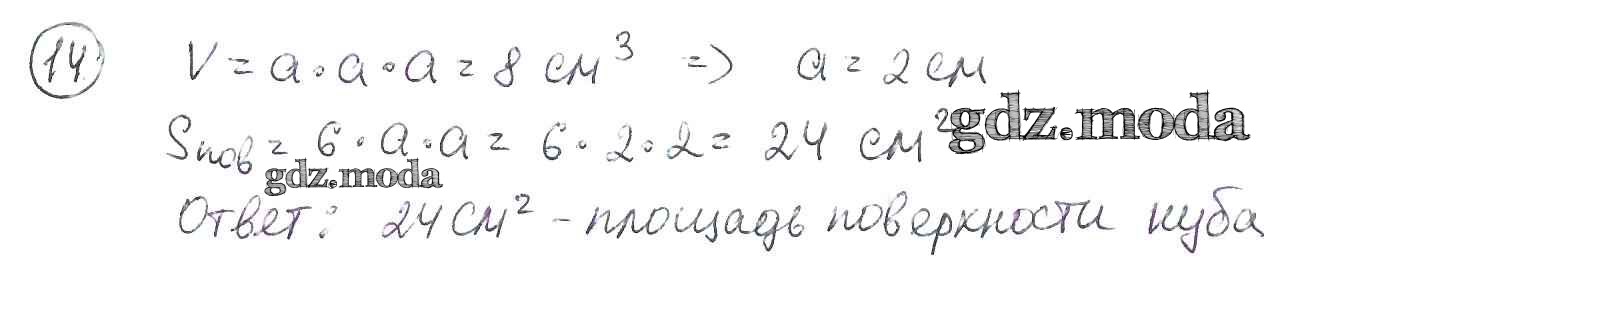 14 V = a · a · a = 8 см³ => a = 2 см
Sпов = 6 · a · a = 6 · 2 · 2 = 24 см² gdz.moda
gdz.moda
Ответ: 24 см² - площадь поверхности куба